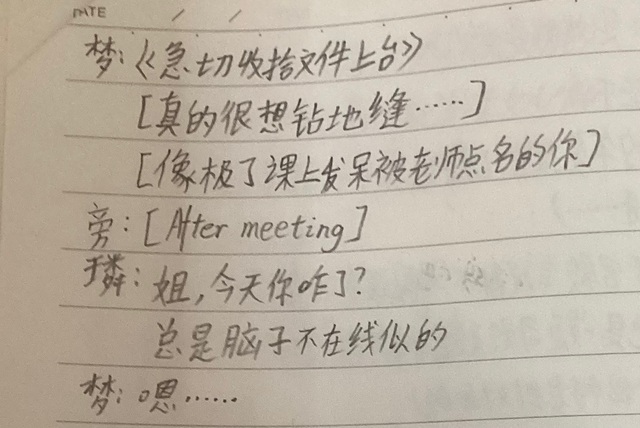 DATE / /
梦:《急切收拾文件上台》
[真的很想钻地缝……]
[像极了课上发呆被老师点名的你]
旁:[After meeting]
璘:姐,今天你咋了?
总是脑子不在线似的
梦:嗯……